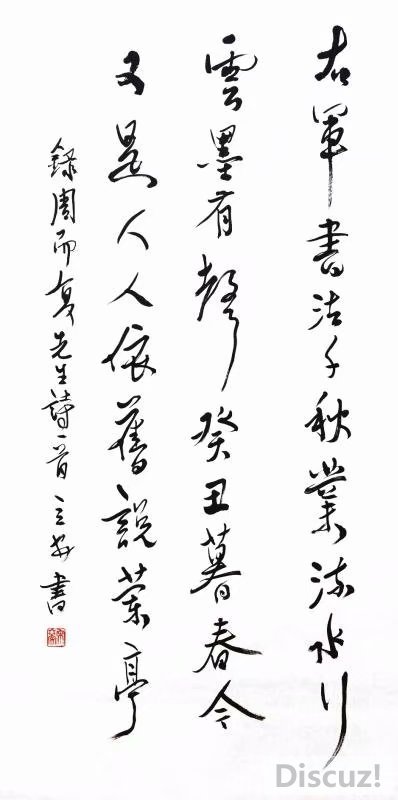 右軍書法千秋業流水行
雲墨有聲癸丑暮春今
又是人人依舊說蘭亭
錄周而复先生詩一首 立安書
Discuz!